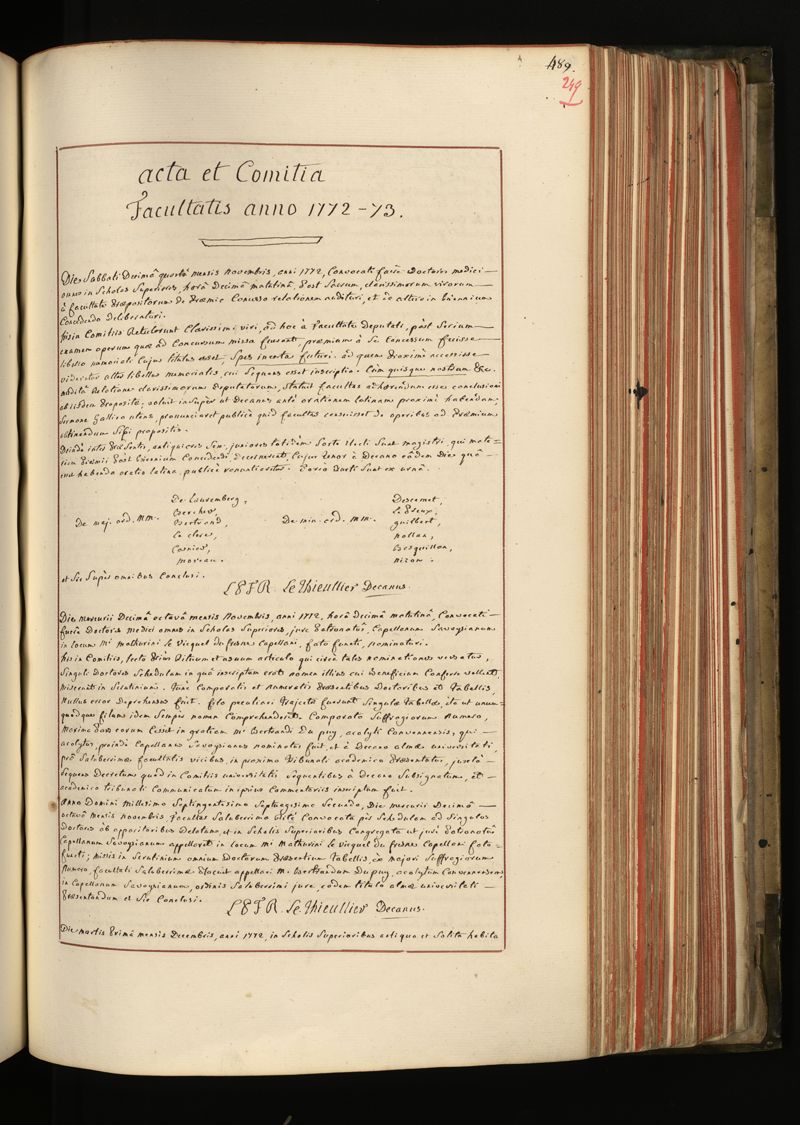 489.
249
acta et Comitia
Facultatis anno 1772-73.
Die Sabbati Decimâ quartâ mensis novembris, anni 1772, Convocati fuere Doctores medici
omnes in Scholas Superiores, horâ Decimâ matutinâ, Post Sacrum, clarissimorum virorum
à facultate Praepositorum de Praemio Concesso relationem audituri, et de altero in biennium
Concedendo deliberaturi.
hisce in Comitiis Retulerunt Clarissimi viri, ad hoc à Facultate Deputati, post Serium
examen operum quae ad Concursum missa fuerunt, praemium à Se Concessum fuisse
libello memoriali Cujus titulus esset, Spes incerta futuri. ad quem proximè accessisse
videretur alter libellus memorialis, cui Sequens esset inscriptio. Cùm quisque nostrum &c.
auditâ Relatione clarissimorum Deputatorum, Statuit facultas adhaerendum esse conclusioni
ab iisdem Propositae; voluit insuper ut Decanus ante orationem latinam proximè habendam,
Sermone Gallico utens, pronunciaret publicè quid facultas censuisset de operibus ad Praemium
obtinendum Sibi propositis.
Deinde inter Praesentes, antiquiores Sex, juniores totidem Sorte electi Sunt magistri, qui mate=
riem Praemii Post biennium Concedendi Decernerent, Cujus tenor à Decano eâdem Die quâ
erit habenda oratio latina, publicè renuntiaretur. Porro Ducti Sunt ex urnâ.
De maj. ord. MM.
De Lauremberg,
Bercher,
Bertrand,
Le clerc,
Cosnier,
moreau.
De min. ord. MM.
Descemet,
Le Preux,
guilbert,
nollan,
Bosquillon,
nizon.
et Sic Super omnibus Conclusi.
L P F R Le Thieullier Decanus.
Die mercurii Decimâ octavâ mensis Novembris, anni 1772, horâ Decimâ matutinâ, Convocati
fuere Doctores medici omnes in Scholas Superiores, jure Patronatûs, Capellanum Savoysianum
in locum Mi mathurini le Vicquel du fresne Capellani, fato functi, nominaturi.
his in Comitiis, lecto Prius Rituum et usuum articulo qui circà tales nominationes versatur,
Singuli Doctores Schedulam in quâ inscriptum erat nomen illius cui Beneficium Conferre vellent,
miserunt in Scrutinium. Tunc Comparatis et numeratis Praesentibus Doctoribus et Tabellis,
nullus error Deprehensus fuit. filo peculiari Trajectae fuerunt Singulae Tabellae, ita ut unum=
quodque filum idem Semper nomen Comprehenderet. Comparato Suffragiorum numero,
maxima pars eorum Cessit in gratiam Mi Bertrandi Du puy, acolyti Convennensis, qui
acolytus, proindè Capellanus Savoysianus nominatus fuit, et à Decano almae universitati,
pro Saluberrimae facultatis vicibus, in proximo Tribunali academico Praesentatus, juxtà
Sequens Decretum quod in Comitiis universitatis Sequentibus à Decano Subsignatum, et
academico tribunali Communicatum in ipsius Commentariis inscriptum fuit.
Anno Domini Millesimo Septingentesimo Septuagesimo Secundo, Die mercurii Decimâ
octavâ mensis novembris, facultas Saluberrima ritè Convocata per Schedulam ad Singulos
Doctores ab apparitoribus Delatam, et in Scholis Superioribus Congregata ut jure Patronatûs
Capellanum Savoysianum appelleret in locum Mi Mathurini le Vicquel du fresne Capellani fato
functi; missis in Scrutinium omnium Doctorum Praesentium Tabellis ex majori Suffragiorum
numero, facultati Saluberrimae Placuit appellari M. Bertrandum Du puy, acolytum Convennensem
in Capellanum Savoysianum, ordinis Saluberrimi jure, eodem titulo almae universitati
Praesentandum et Sic Conclusi.
L P F R Le Thieullier Decanus.
Die martis Primâ mensis Decembris, anni 1772, in Scholis Superioribus antiquo et Solito habitu